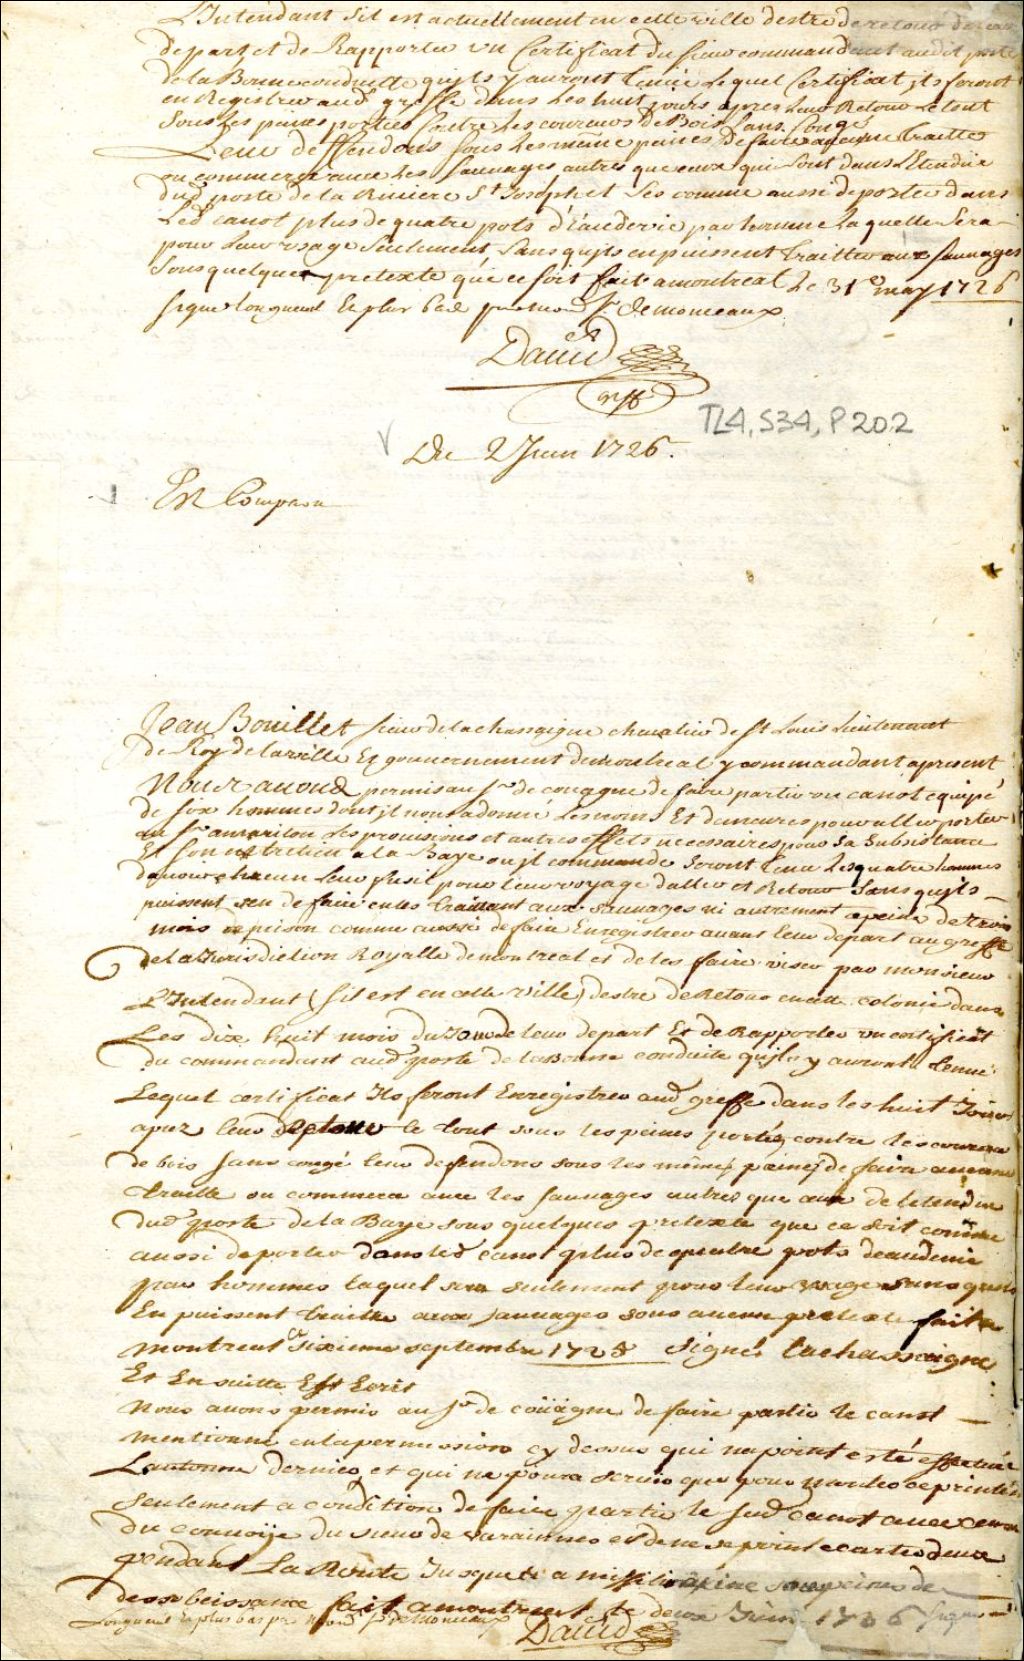 L'Intendant s'il est actuellement en cette ville destre de retour de leur
depart et de Rapporter un Certificat du sieur commandant audit poste
de la Bonne conduitte qu'ils y auront tenüe lequel Certificat ils feront
enRegistrer aud greffe dans les huit jours apres leur Retour le tout
sous les peines portées Contre les coureurs de Bois sans Congé
Leur deffendons sous les même peines de faire aucune traitte
ou commerce avec les sauvages autres que ceux qui sont dans l'Etendüe
dud poste de la Riviere St Joseph et comme aussi de porter dans
led canot plus de quatre pots d'Eaudevie par homme laquelle sera
pour leur usage seulement, sans qu'ils en puissent traitter aux sauvages
sous quelque pretexte que ce soit fait a montreal le 31e may 1726
signé longueuil et plus bas par mond Sr. de monceaux
David
greff
TL4, S34, P202
Du 2 Juin 1726.
Est Comparu
Jean Bouillet sieur de la chassaigne chevalier de St Louis Lieutenant
de Roy de la ville Et gouvernement de montreal y commandant apresent
Nous avons permis au Sr de couagne de faire partir un canot equipé
de six hommes dont il nous a donné les noms Et demeures pour aller porter
au Sr amariton les provisions et autres effets necessaires pour sa subsistance
Et son entretien a la Baye ou il commande seront tenu lesquatre hommes
davoir chacun leur fusil pour leur voyage daller et Retour sans qu'ils
puissent sen defaire en les traittant aux sauvages ni autrement apeine de trois
mois de prison comme aussi de faire Enregistrer avant leur depart au greffe
de la Jurisdiction Royalle de montreal et de les faire viser par monsieur
L'Intendant (s'il est en cette ville) destre de Retour en cette colonie dans
Les dix huit mois du Jour de leur depart Et de Rapporter un certificat
du commandant aud poste de la Bonne conduite qu'ils y auront tenüe
Lequel certificat Ils feront Enregistrer aud greffe dans les huit Jours
apres leur le tout sous les peines portées contre les coureurs
de bois sans congé leur defendons sous les mêmes peines de faire aucune
traitte ou commerce avec les sauvages autres que ceux de letendüe
dud poste de la Baye sous quelques pretexte que ce soit comme
aussi de porter dans led canot plus de quatre pots deaudevie
par hommes laquel sera seulement pour leur usage sans quils
En puissent traitter aux sauvages sous aucun pretexte fait a
montreal ce sixieme septembre 1725 signé lachassaigne
Et En suitte Est Ecrit
Nous avons permis au Sr de coüagne de faire partir le canot
mentionné en la permission cy dessus qui na point esté effectué
Lautonne dernier et qui ne poura servir que pour monter ce printems
seulement a condition de faire partir le sud canot avec ceux
du convoije du sieur de varainnes et de ne se point ecarter deux
pendant La Route Jusques a missilimakinac sous peine de
desobeissance fait a montreal le deux Juin 1726 signé
Longueuil et plus bas par mond Sr de monceaux
David